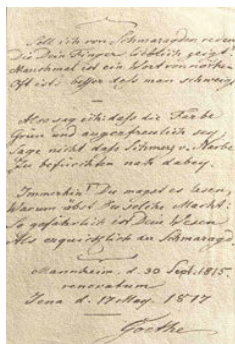 Soll ich von Smaragden reden
Die Dein Finger lieblich zeigt?
Manchmal ist ein Wort von nöthen
Oft ist's besser daß man schweigt.
Also sag ich: daß die Farbe
Grün und augerfreulich sey
Sage nicht daß Schmerz u. Narbe
Zu befürchten nah dabey.
Immerhin! Du magst es lesen,
Warum übst Du solche Macht!
So gefährlich ist Dein Wesen
Als erquicklich der Smaragd.
Mannheim, d. 30 Sept. 1815.
renovatum
Jena d. 17 May. 1817
Goethe